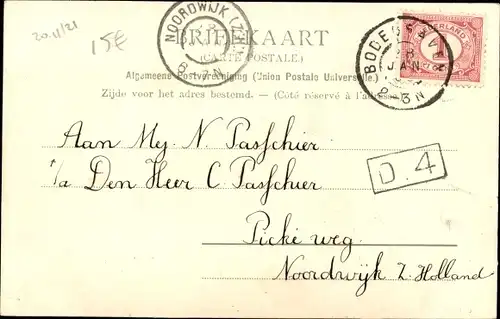 20.11/21
15€
NOORDWIJK (Z.H.)
BRIEFKAART
(CARTE POSTALE)
Algemeene Postvereeniging (Union Postale Universelle.)
Zijde voor het adres bestemd. — (Côté réservé à l'adresse
BODEGRAVEN
JAN
2-3N
NEDERLAND
1
Aan Mej. N. Passchier
p/a Den Heer C. Passchier
D.4
Pické weg.
Noordwijk Z. Holland